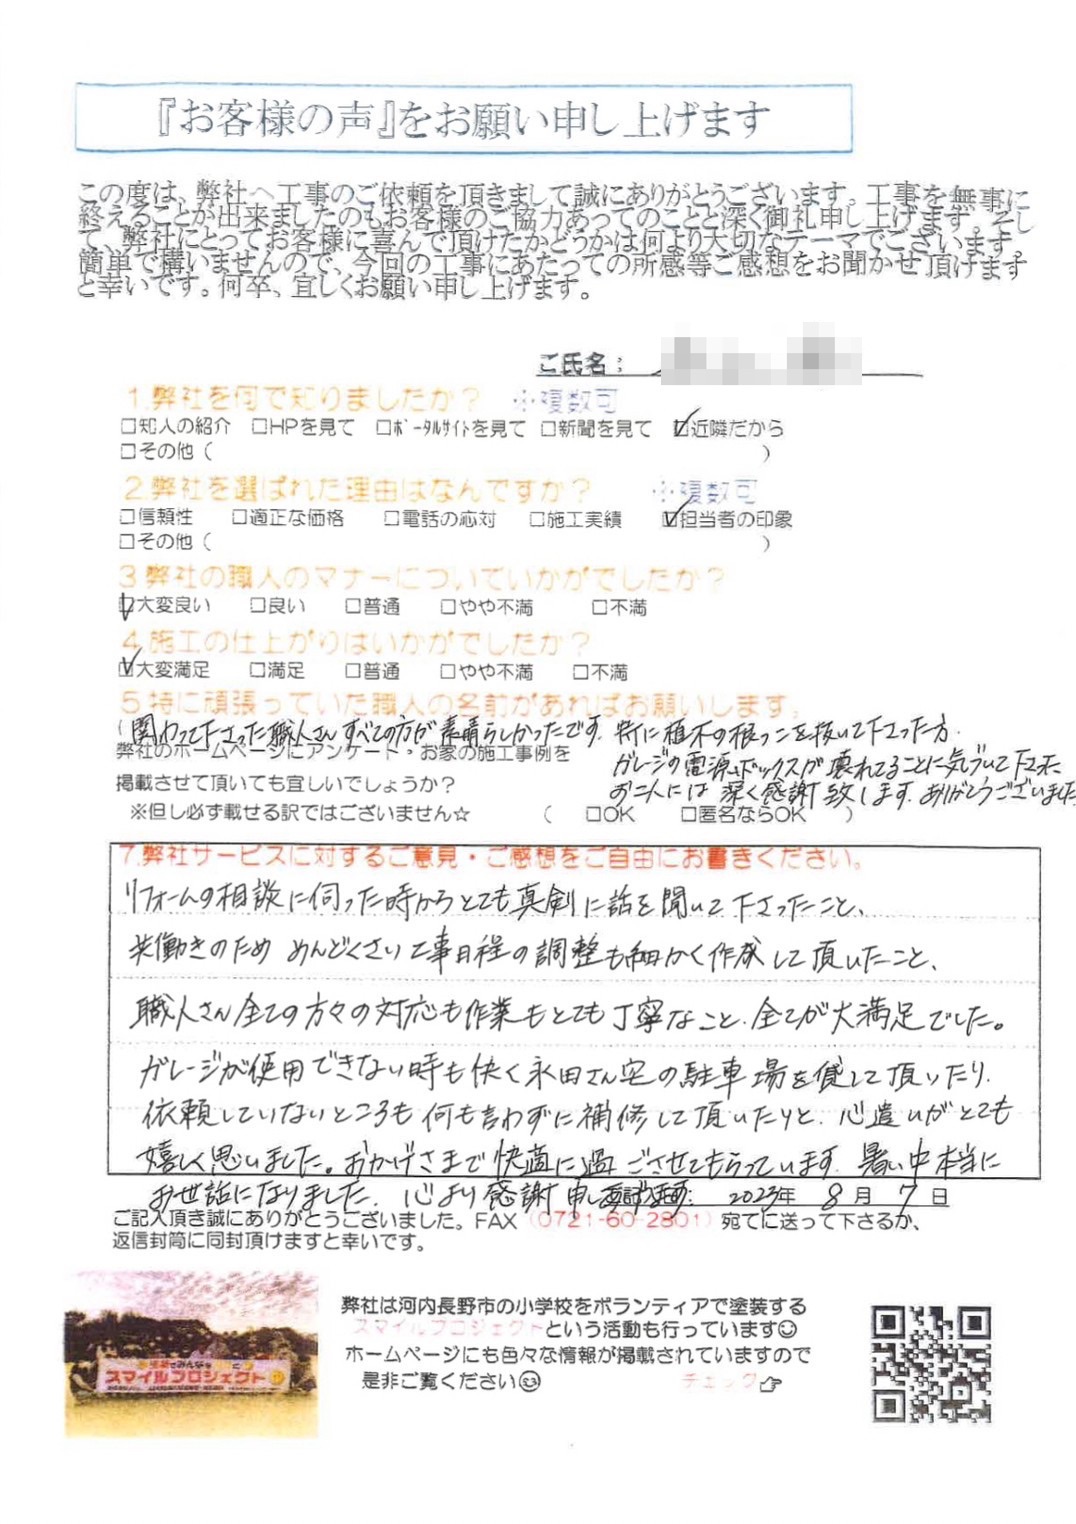 『お客様の声』をお願い申し上げます
この度は、弊社へ工事のご依頼を頂きまして誠にありがとうございます。工事を無事に
終えることが出来ましたのもお客様のご協力あってのことと深く御礼申し上げます。そし
て、弊社にとってお客様に喜んで頂けたかどうかは何より大切なテーマでございます。
簡単で構いませんので、今回の工事にあたっての所感等ご感想をお聞かせ頂けます
と幸いです。何卒、宜しくお願い申し上げます。
ご氏名：
1.弊社を何で知りましたか？ ※複数可
□知人の紹介 □HPを見て □ﾎﾟｰﾀﾙｻｲﾄを見て □新聞を見て ☑近隣だから
□その他（ ）
2.弊社を選ばれた理由はなんですか？ ※複数可
□信頼性 □適正な価格 □電話の応対 □施工実績 ☑担当者の印象
□その他（ ）
3.弊社の職人のマナーについていかがでしたか？
☑大変良い □良い □普通 □やや不満 □不満
4.施工の仕上がりはいかがでしたか？
☑大変満足 □満足 □普通 □やや不満 □不満
5.特に頑張っていた職人の名前があればお願いします。
（関わって下さった職人さんすべての方が素晴らしかったです。特に植木の根っこを抜いて下さった方、
ガレージの電源ボックスが壊れてることに気づいて下さった
お二人には深く感謝致します。ありがとうございました
弊社のホームページにアンケート・お家の施工事例を
掲載させて頂いても宜しいでしょうか？
※但し必ず載せる訳ではございません☆ （ □OK □匿名ならOK ）
7.弊社サービスに対するご意見・ご感想をご自由にお書きください。
リフォームの相談に伺った時からとても真剣に話を聞いて下さったこと、
共働きのため めんどくさい工事日程の調整も細かく作成して頂いたこと、
職人さん全ての方々の対応も作業もとても丁寧なこと、全てが大満足でした。
ガレージが使用できない時も快く永田さん宅の駐車場を貸して頂いたり、
依頼していないところも何も言わずに補修して頂いたりと、心遣いがとても
嬉しく思いました。おかげさまで快適に過ごさせてもらっています。暑い中本当に
お世話になりました。心より感謝申し 2023年 8月 7日
ご記入頂き誠にありがとうございました。FAX（0721-60-2801）宛てに送って下さるか、
返信封筒に同封頂けますと幸いです。
弊社は河内長野市の小学校をボランティアで塗装する
スマイルプロジェクトという活動も行っています☺
ホームページにも色々な情報が掲載されていますので
是非ご覧ください☺ チェック☞
スマイルプロジェクト